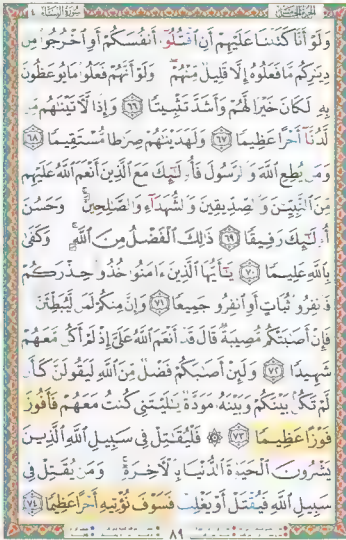 الجزء الخامس سورة النساء ٤
وَلَوْ أَنَّا كَتَبْنَا عَلَيْهِمْ أَنِ اقْتُلُوٓا۟ أَنفُسَكُمْ أَوِ اخْرُجُوا۟ مِن
دِيَٰرِكُم مَّا فَعَلُوهُ إِلَّا قَلِيلٌ مِّنْهُمْ ۖ وَلَوْ أَنَّهُمْ فَعَلُوا۟ مَا يُوعَظُونَ
بِهِۦ لَكَانَ خَيْرًا لَّهُمْ وَأَشَدَّ تَثْبِيتًا ٦٦ وَإِذًا لَّءَاتَيْنَٰهُم مِّن
لَّدُنَّآ أَجْرًا عَظِيمًا ٦٧ وَلَهَدَيْنَٰهُمْ صِرَٰطًا مُّسْتَقِيمًا ٦٨
وَمَن يُطِعِ ٱللَّهَ وَٱلرَّسُولَ فَأُو۟لَٰٓئِكَ مَعَ ٱلَّذِينَ أَنْعَمَ ٱللَّهُ عَلَيْهِم
مِّنَ ٱلنَّبِيِّۦنَ وَٱلصِّدِّيقِينَ وَٱلشُّهَدَآءِ وَٱلصَّٰلِحِينَ ۚ وَحَسُنَ
أُو۟لَٰٓئِكَ رَفِيقًا ٦٩ ذَٰلِكَ ٱلْفَضْلُ مِنَ ٱللَّهِ ۚ وَكَفَىٰ
بِٱللَّهِ عَلِيمًا ٧٠ يَٰٓأَيُّهَا ٱلَّذِينَ ءَامَنُوا۟ خُذُوا۟ حِذْرَكُمْ
فَٱنفِرُوا۟ ثُبَاتٍ أَوِ ٱنفِرُوا۟ جَمِيعًا ٧١ وَإِنَّ مِنكُمْ لَمَن لَّيُبَطِّئَنَّ
فَإِنْ أَصَٰبَتْكُم مُّصِيبَةٌ قَالَ قَدْ أَنْعَمَ ٱللَّهُ عَلَىَّ إِذْ لَمْ أَكُن مَّعَهُمْ
شَهِيدًا ٧٢ وَلَئِنْ أَصَٰبَكُمْ فَضْلٌ مِّنَ ٱللَّهِ لَيَقُولَنَّ كَأَن
لَّمْ تَكُنۢ بَيْنَكُمْ وَبَيْنَهُۥ مَوَدَّةٌ يَٰلَيْتَنِى كُنتُ مَعَهُمْ فَأَفُوزَ
فَوْزًا عَظِيمًا ٧٣ ۞ فَلْيُقَٰتِلْ فِى سَبِيلِ ٱللَّهِ ٱلَّذِينَ
يَشْرُونَ ٱلْحَيَوٰةَ ٱلدُّنْيَا بِٱلْءَاخِرَةِ ۚ وَمَن يُقَٰتِلْ فِى
سَبِيلِ ٱللَّهِ فَيُقْتَلْ أَوْ يَغْلِبْ فَسَوْفَ نُؤْتِيهِ أَجْرًا عَظِيمًا ٧٤
٨٩